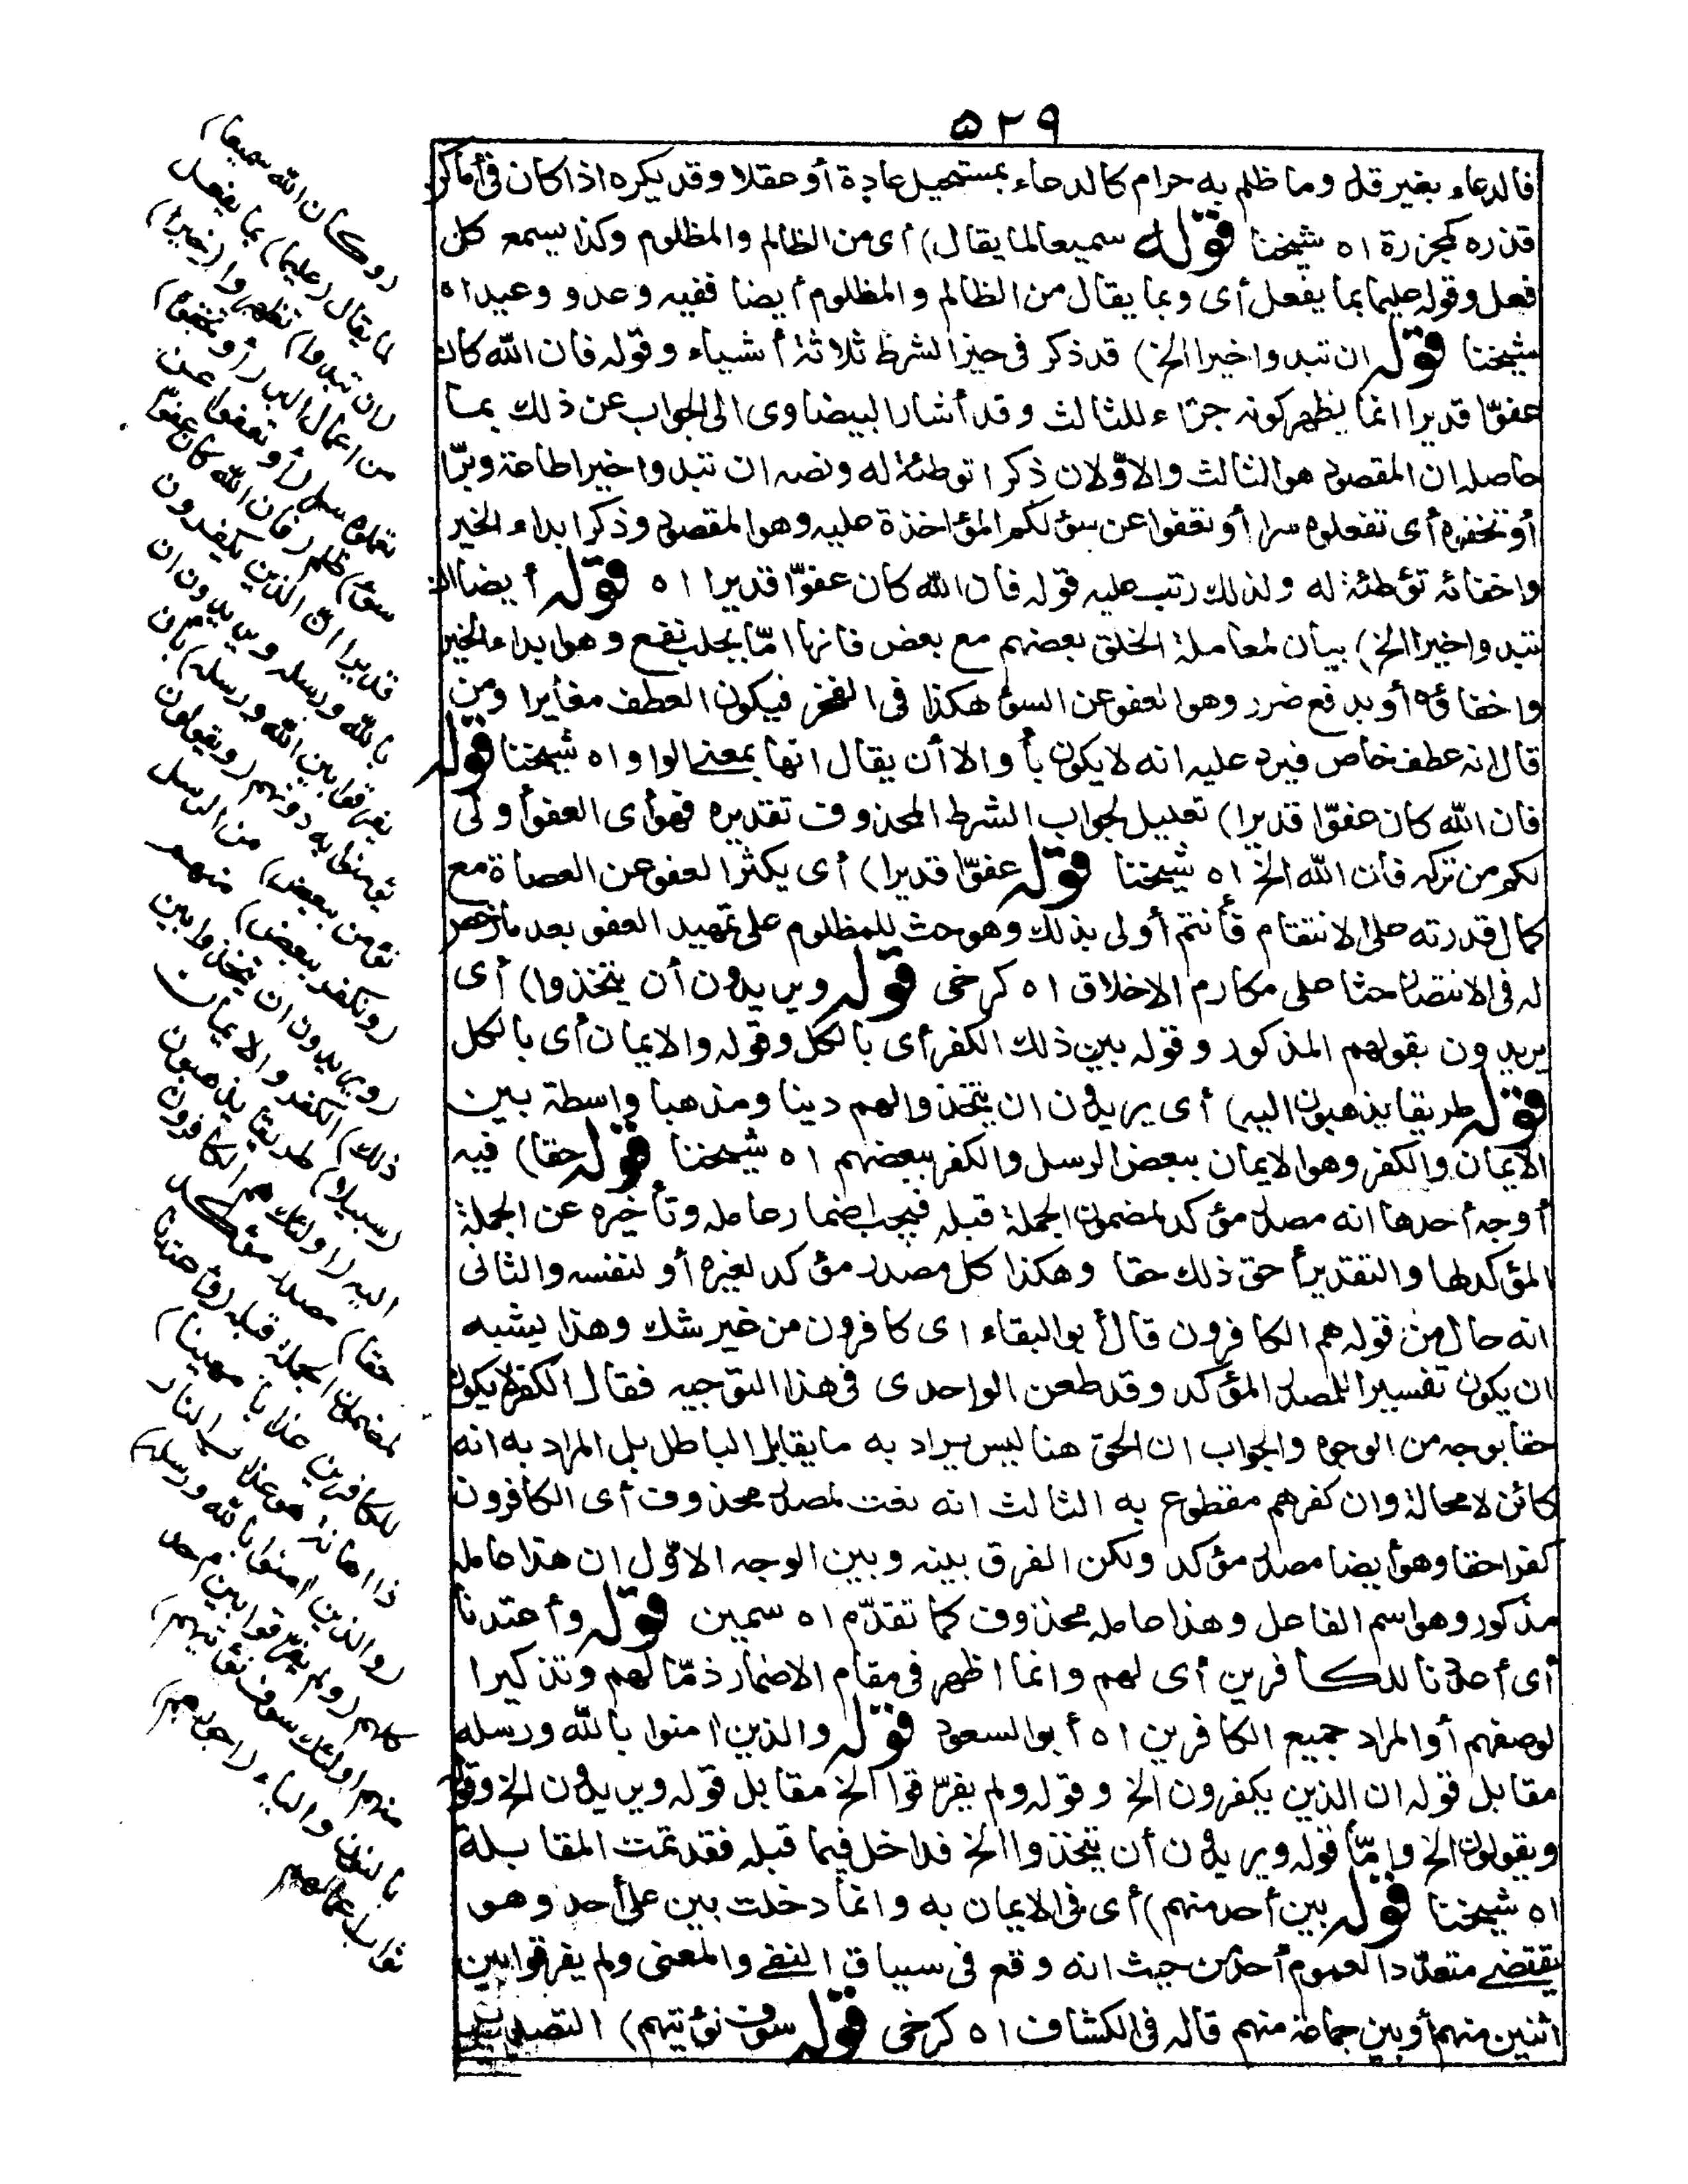 ٥٢٩
فالدعاء بغير قدر وما ظلم به حرام كالدعاء بمستحيل عادة أو عقلا وقد يكره اذا كان في أماكن
قذره كمجزرة اه شيخنا قوله سميعا لما يقال) أى من الظالم والمظلوم وكذا يسمع كل
فعل وقوله عليما بما يفعل أى وبما يقال من الظالم والمظلوم أيضا ففيه وعد و وعيد اه
شيخنا قوله ان تبدوا خيرا الخ) قد ذكر فى حيز الشرط ثلاثة أشياء وقوله فان الله كان
عفوّا قديرا انما يظهر كونه جزاء للثالث وقد أشار البيضاوى الى الجواب عن ذلك بما
حاصله ان المقصود هو الثالث والاوّلان ذكرا توطئة له ونصه ان تبدوا خيرا طاعة وبرّا
أو تخفوه أى تفعلوه سرا أو تعفوا عن سوء لكم المؤاخذة عليه وهو المقصود وذكر ابداء الخير
واخفائه توطئة له ولذلك رتب عليه قوله فان الله كان عفوّا قديرا اه قوله أيضا ان
تبدوا خيرا الخ) بيان لمعاملة الخلق بعضهم مع بعض فانها امّا بجلب نفع وهو ابداء الخير
واخفاؤه أو بدفع ضرر وهو العفو عن السوء هكذا فى الفخر فيكون العطف مغايرا ومن
قال انه عطف خاص فيرد عليه انه لا يكون بأو الا أن يقال انها بمعنى الواو اه شيخنا قوله
فان الله كان عفوّا قديرا) تعليل لجواب الشرط المحذوف تقديره فهو أى العفو أولى
لكم من تركه فان الله الخ اه شيخنا قوله عفوّا قديرا) أى يكثر العفو عن العصاة مع
كمال قدرته على الانتقام فأنتم أولى بذلك وهو حث للمظلوم على تمهيد العفو بعد ما رخص
له فى الانتصار حثا على مكارم الاخلاق اه كرخى قوله ويريدون أن يتخذوا) أى
يريدون بقولهم المذكور وقوله بين ذلك الكفر أى بالكل وقوله والايمان أى بالكل
قوله طريقا يذهبون اليه) أى يريدون ان يتخذوا لهم دينا ومذهبا واسطة بين
الايمان والكفر وهو الايمان ببعض الرسل والكفر ببعضهم اه شيخنا قوله حقا) فيه
أوجه أحدها انه مصدر مؤكد لمضمون الجملة قبله فيجب اضمار عامله وتأخيره عن الجملة
المؤكد لها والتقدير أحق ذلك حقا وهكذا كل مصدر مؤكد لغيره أو لنفسه والثانى
انه حال من قوله هم الكافرون قال أبو البقاء اى كافرون من غير شك وهذا يشبه
ان يكون تفسيرا للمصدر المؤكد وقد طعن الواحدى فى هذا التوجيه فقال الكفر لا يكون
حقا بوجه من الوجوه والجواب ان الحق هنا ليس يراد به ما يقابل الباطل بل المراد به انه
كائن لا محالة وان كفرهم مقطوع به الثالث انه نعت لمصدر محذوف أى الكافرون
كفرا حقا وهو أيضا مصدر مؤكد ولكن الفرق بينه وبين الوجه الاوّل ان هذا عامله
مذكور وهو اسم الفاعل وهذا عامله محذوف كما تقدّم اه سمين قوله وأعتدنا
أى أعددنا للكافرين أى لهم وانما اظهر فى مقام الاضمار ذمّا لهم وتذكيرا
لوصفهم أو المراد جميع الكافرين اه أبو السعود قوله والذين امنوا بالله ورسله
مقابل قوله ان الذين يكفرون الخ وقوله ولم يفرّقوا الخ مقابل قوله ويريدون الخ وقوله
ويقولون الخ وامّا قوله ويريدون أن يتخذوا الخ فداخل فيما قبله فقد تمت المقابلة
اه شيخنا قوله بين أحد منهم) أى فى الايمان به وانما دخلت بين على أحد وهو
يقتضى متعدّدا لعموم أحد من حيث انه وقع فى سياق النفى والمعنى ولم يفرقوا بين
اثنين منهم أو بين جماعة منهم قاله فى الكشاف اه كرخى قوله سوف نؤتيهم) التصدير
(وكان الله سميعا)
لما يقال (عليما) بما يفعل
(ان تبدوا) تظهروا (خيرا)
من اعمال البر (أو تخفوه)
تعملوه سرا (أو تعفوا عن
سوء) ظلم (فان الله كان عفوّا
قديرا ان الذين يكفرون
بالله ورسله ويريدون ان
يفرقوا بين الله ورسله) بان
يؤمنوا به دونهم (ويقولون
نؤمن ببعض) من الرسل
(ونكفر ببعض) منهم
(ويريدون ان يتخذوا بين
ذلك) الكفر والايمان
(سبيلا) طريقا يذهبون
اليه (اولئك هم الكافرون
حقا) مصدر مؤكد
لمضمون الجملة قبله (وأعتدنا
للكافرين عذابا مهينا)
ذا اهانة هو عذاب النار
(والذين امنوا بالله ورسله)
كلهم (ولم يفرّقوا بين احد
منهم اولئك سوف نؤتيهم)
بالنون والياء (اجورهم)
ثواب اعمالهم